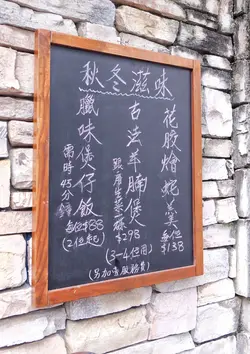 秋冬滋味
花膠燴蛇羹
每位$138
古法羊腩煲
跟唐生菜
$298
(3-4位用)
臘味煲仔飯
需時45分鐘
每位$88
(2位起)
(另加壹服務費)